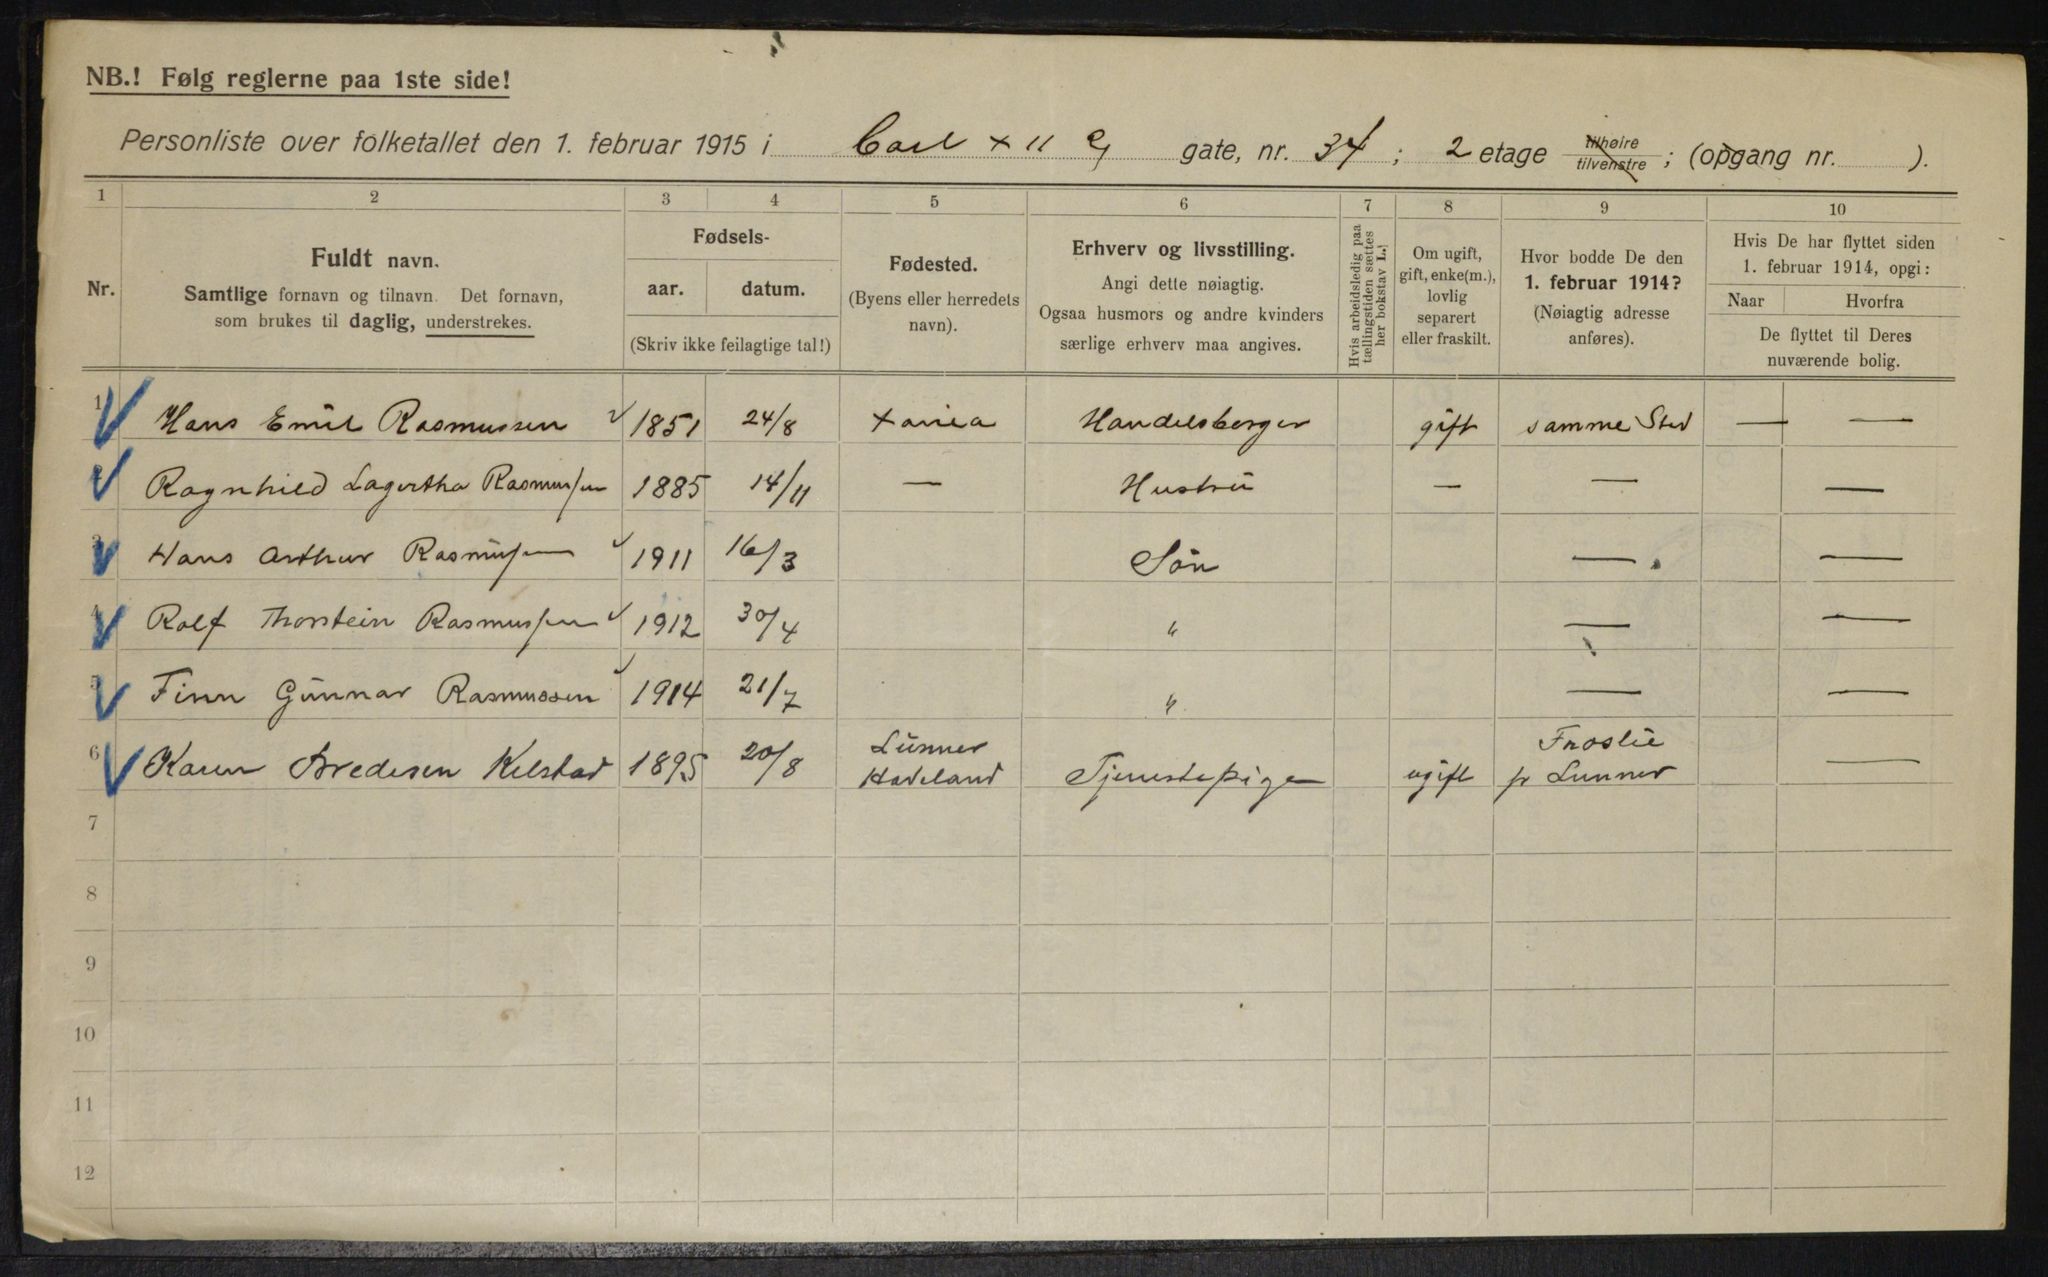 NB.! Følg reglerne paa 1ste side!
Personliste over folketallet den 1. februar 1915 i Carl XII G gate, nr. 34; 2 etage tilhøire tilvenstre; (opgang nr. ).
1 2 3 4 5 6 7 8 9 10
Nr.
Fuldt navn.
Samtlige fornavn og tilnavn. Det fornavn,
som brukes til daglig, understrekes.
Fødsels-
aar. datum.
(Skriv ikke feilagtige tal!)
Fødested.
(Byens eller herredets
navn).
Erhverv og livsstilling.
Angi dette nøiagtig.
Ogsaa husmors og andre kvinders
særlige erhverv maa angives.
Hvis arbeidsledig paa
tællingstiden sættes
her bokstav L.
Om ugift,
gift, enke(m.),
lovlig
separert
eller fraskilt.
Hvor bodde De den
1. februar 1914?
(Nøiagtig adresse
anføres).
Hvis De har flyttet siden
1. februar 1914, opgi:
Naar Hvorfra
De flyttet til Deres
nuværende bolig.
1 Hans Emil Rasmussen 1851 24/8 Xania Handelsborger gift samme Sted — —
2 Ragnhild Lagertha Rasmussen 1885 14/11 — Hustru — — —
3 Hans Arthur Rasmussen 1911 16/3 Søn — —
4 Rolf Thorstein Rasmussen 1912 30/4 " — —
5 Finn Gunnar Rasmussen 1914 21/7 " — —
6 Karen Bredesen Kelstad 1895 20/8 Lunner Hadeland Tjenestepige ugift Froslie pr Lunner —
7
8
9
10
11
12